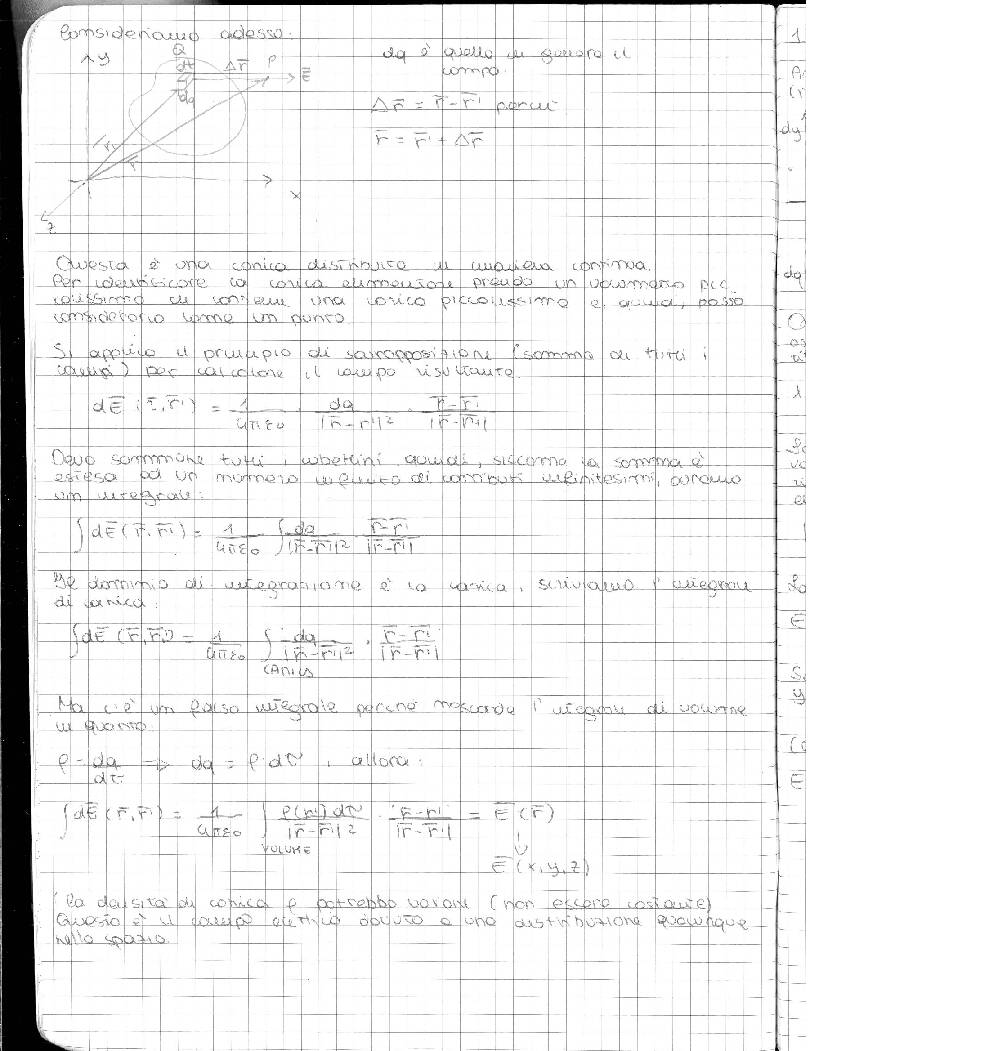 Consideriamo adesso:
y
Q
dτ
dq
Δr̅
P
E̅
r̅'
r̅
x
z
dq è quello che genera il
campo.
Δr̅ = r̅ - r̅' perché
r̅ = r̅' + Δr̅
Questa è una carica distribuita in maniera continua.
Per identificare la carica elementare prendo un volumetto pic
colissimo che contiene una carica piccolissima e, quindi, posso
considerarlo come un punto.
Si applica il principio di sovrapposizione (somma di tutti i
campi) per calcolare il campo risultante.
dE̅ (r̅, r̅') = 1/4πε0 · dq/|r̅ - r̅'|² · r̅ - r̅'/|r̅ - r̅'|
Devo sommare tutti i cubettini quindi, siccome la somma è
estesa ad un numero infinito di contributi infinitesimi, avremo
un integrale:
∫dE̅ (r̅, r̅') = 1/4πε0 ∫ dq/|r̅ - r̅'|² r̅ - r̅'/|r̅ - r̅'|
Il dominio di integrazione è la carica, scriviamo l'integrale
di carica:
∫dE̅ (r̅, r̅') = 1/4πε0 ∫CARICA dq/|r̅ - r̅'|² · r̅ - r̅'/|r̅ - r̅'|
Ma c'è un falso integrale perché nasconde l'integrale di volume
in quanto
ρ = dq/dτ ⟹ dq = ρ·dτ, allora:
∫dE̅ (r̅, r̅') = 1/4πε0 ∫VOLUME ρ(r') dτ/|r̅ - r̅'|² · r̅ - r̅'/|r̅ - r̅'| = E̅ (r̅)
↓
E̅ (x, y, z)
La densità di carica ρ potrebbe variare (non essere costante)
Questo è il campo elettrico dovuto a una distribuzione qualunque
nello spazio.